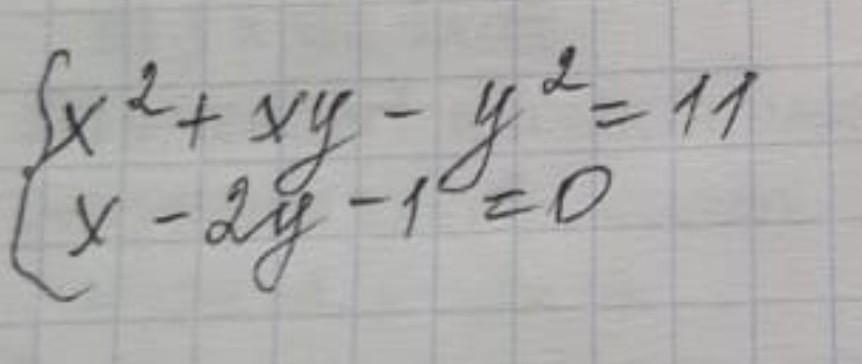 x² + xy - y² = 11
x - 2y - 1 = 0